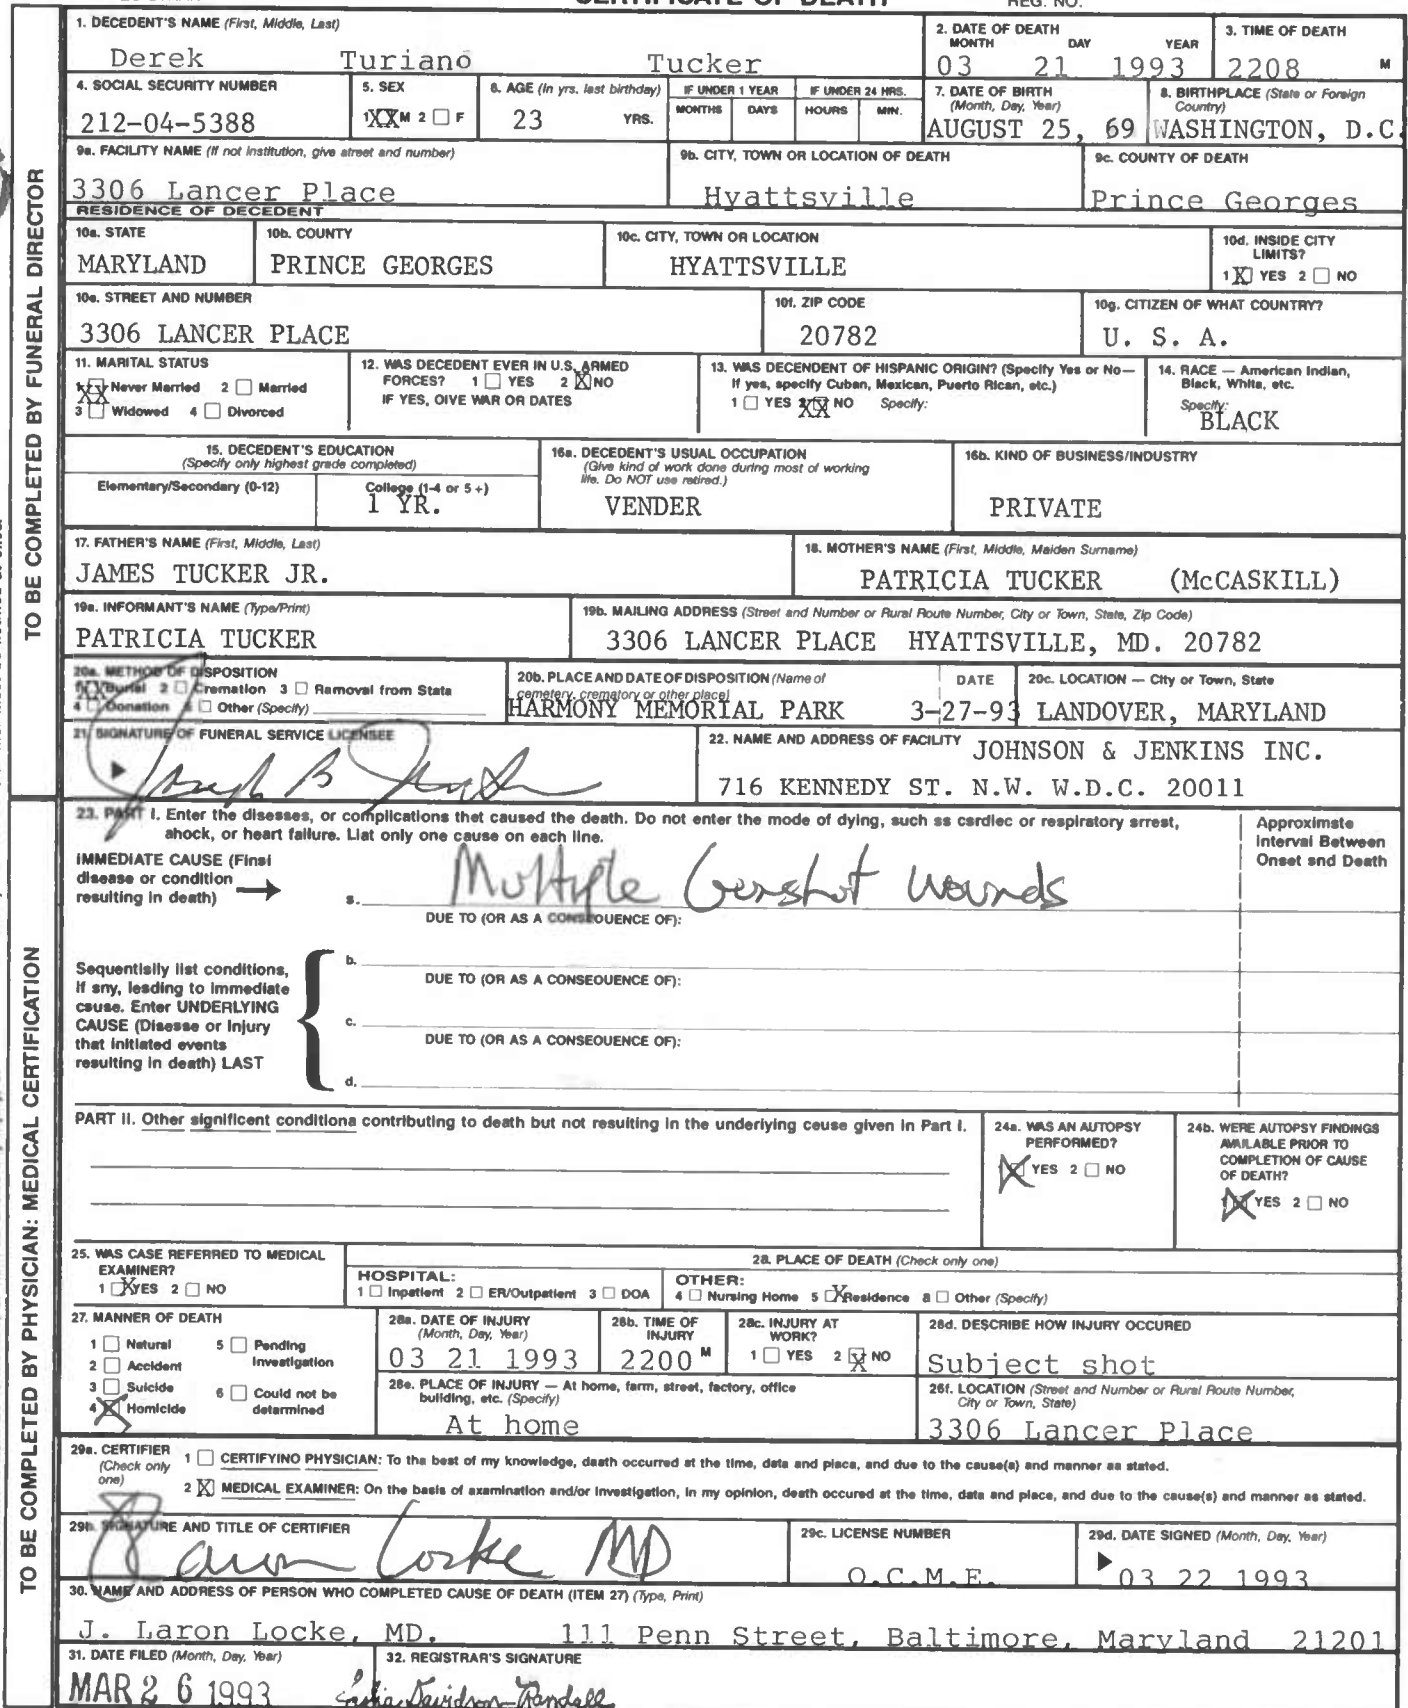 CERTIFICATE OF DEATH REG. NO.
TO BE COMPLETED BY FUNERAL DIRECTOR
1. DECEDENT'S NAME (First, Middle, Last)
Derek Turiano Tucker
2. DATE OF DEATH
MONTH DAY YEAR
03 21 1993
3. TIME OF DEATH
2208 M
4. SOCIAL SECURITY NUMBER
212-04-5388
5. SEX
1 XX M 2 F
6. AGE (In yrs. last birthday)
23 YRS.
IF UNDER 1 YEAR
MONTHS DAYS
IF UNDER 24 HRS.
HOURS MIN.
7. DATE OF BIRTH
(Month, Day, Year)
AUGUST 25, 69
8. BIRTHPLACE (State or Foreign
Country)
WASHINGTON, D.C.
9a. FACILITY NAME (If not institution, give street and number)
3306 Lancer Place
9b. CITY, TOWN OR LOCATION OF DEATH
Hyattsville
9c. COUNTY OF DEATH
Prince Georges
RESIDENCE OF DECEDENT
10a. STATE
MARYLAND
10b. COUNTY
PRINCE GEORGES
10c. CITY, TOWN OR LOCATION
HYATTSVILLE
10d. INSIDE CITY
LIMITS?
1 X YES 2 NO
10e. STREET AND NUMBER
3306 LANCER PLACE
10f. ZIP CODE
20782
10g. CITIZEN OF WHAT COUNTRY?
U. S. A.
11. MARITAL STATUS
XX Never Married 2 Married
3 Widowed 4 Divorced
12. WAS DECEDENT EVER IN U.S. ARMED
FORCES? 1 YES 2 X NO
IF YES, GIVE WAR OR DATES
13. WAS DECENDENT OF HISPANIC ORIGIN? (Specify Yes or No—
If yes, specify Cuban, Mexican, Puerto Rican, etc.)
1 YES XX NO Specify:
14. RACE — American Indian,
Black, White, etc.
Specify:
BLACK
15. DECEDENT'S EDUCATION
(Specify only highest grade completed)
Elementary/Secondary (0-12)
College (1-4 or 5+)
1 YR.
16a. DECEDENT'S USUAL OCCUPATION
(Give kind of work done during most of working
life. Do NOT use retired.)
VENDER
16b. KIND OF BUSINESS/INDUSTRY
PRIVATE
17. FATHER'S NAME (First, Middle, Last)
JAMES TUCKER JR.
18. MOTHER'S NAME (First, Middle, Maiden Surname)
PATRICIA TUCKER (McCASKILL)
19a. INFORMANT'S NAME (Type/Print)
PATRICIA TUCKER
19b. MAILING ADDRESS (Street and Number or Rural Route Number, City or Town, State, Zip Code)
3306 LANCER PLACE HYATTSVILLE, MD. 20782
20a. METHOD OF DISPOSITION
XX Burial 2 Cremation 3 Removal from State
4 Donation Other (Specify)
20b. PLACE AND DATE OF DISPOSITION (Name of
cemetery, crematory or other place)
HARMONY MEMORIAL PARK
DATE
3-27-93
20c. LOCATION — City or Town, State
LANDOVER, MARYLAND
21. SIGNATURE OF FUNERAL SERVICE LICENSEE
22. NAME AND ADDRESS OF FACILITY
JOHNSON & JENKINS INC.
716 KENNEDY ST. N.W. W.D.C. 20011
TO BE COMPLETED BY PHYSICIAN: MEDICAL CERTIFICATION
23. PART I. Enter the diseases, or complications that caused the death. Do not enter the mode of dying, such as cardiac or respiratory arrest,
shock, or heart failure. List only one cause on each line.
Approximate
Interval Between
Onset and Death
IMMEDIATE CAUSE (Final
disease or condition
resulting in death)
a. Multiple Gunshot Wounds
DUE TO (OR AS A CONSEQUENCE OF):
Sequentially list conditions,
if any, leading to immediate
cause. Enter UNDERLYING
CAUSE (Disease or Injury
that initiated events
resulting in death) LAST
b.
DUE TO (OR AS A CONSEQUENCE OF):
c.
DUE TO (OR AS A CONSEQUENCE OF):
d.
PART II. Other significant conditions contributing to death but not resulting in the underlying cause given in Part I.
24a. WAS AN AUTOPSY
PERFORMED?
X YES 2 NO
24b. WERE AUTOPSY FINDINGS
AVAILABLE PRIOR TO
COMPLETION OF CAUSE
OF DEATH?
X YES 2 NO
25. WAS CASE REFERRED TO MEDICAL
EXAMINER?
1 X YES 2 NO
26. PLACE OF DEATH (Check only one)
HOSPITAL:
1 Inpatient 2 ER/Outpatient 3 DOA
OTHER:
4 Nursing Home 5 X Residence 6 Other (Specify)
27. MANNER OF DEATH
1 Natural 5 Pending
Investigation
2 Accident
3 Suicide 6 Could not be
determined
4 X Homicide
28a. DATE OF INJURY
(Month, Day, Year)
03 21 1993
28b. TIME OF
INJURY
2200 M
28c. INJURY AT
WORK?
1 YES 2 X NO
28d. DESCRIBE HOW INJURY OCCURED
Subject shot
28e. PLACE OF INJURY — At home, farm, street, factory, office
building, etc. (Specify)
At home
28f. LOCATION (Street and Number or Rural Route Number,
City or Town, State)
3306 Lancer Place
29a. CERTIFIER
(Check only
one)
1 CERTIFYING PHYSICIAN: To the best of my knowledge, death occurred at the time, date and place, and due to the cause(s) and manner as stated.
2 X MEDICAL EXAMINER: On the basis of examination and/or investigation, in my opinion, death occured at the time, date and place, and due to the cause(s) and manner as stated.
29b. SIGNATURE AND TITLE OF CERTIFIER
Laron Locke MD
29c. LICENSE NUMBER
O.C.M.E.
29d. DATE SIGNED (Month, Day, Year)
03 22 1993
30. NAME AND ADDRESS OF PERSON WHO COMPLETED CAUSE OF DEATH (ITEM 27) (Type, Print)
J. Laron Locke, MD. 111 Penn Street, Baltimore, Maryland 21201
31. DATE FILED (Month, Day, Year)
MAR 26 1993
32. REGISTRAR'S SIGNATURE
Davidson-Randall